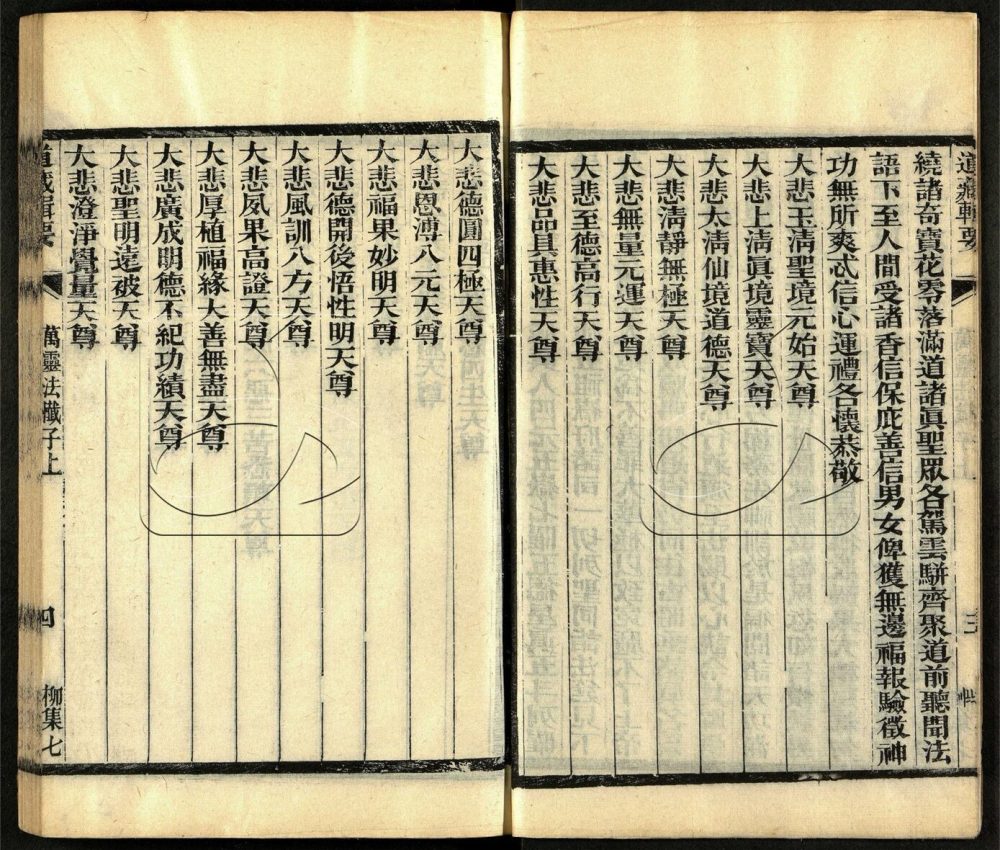 道藏輯要
三
繞諸奇寶花零落滿道諸眞聖眾各駕雲駢齊聚道前聽聞法
語下至人間受諸香信保庇善信男女俾獲無邊福報驗徵神
功無所爽忒信心運禮各懷恭敬
大悲玉淸聖境元始天尊
大悲上淸眞境靈寶天尊
大悲太淸仙境道德天尊
大悲淸靜無極天尊
大悲無量元運天尊
大悲至德高行天尊
大悲品具惠性天尊
大悲德圓四極天尊
大悲恩溥八元天尊
大悲福果妙明天尊
大悲德開後悟性明天尊
大悲風訓八方天尊
大悲夙果高證天尊
大悲厚植福緣大善無盡天尊
大悲廣成明德不紀功績天尊
大悲聖明遠被天尊
大悲澄淨覺量天尊
道藏輯要 萬靈法懺子上 四 柳集七